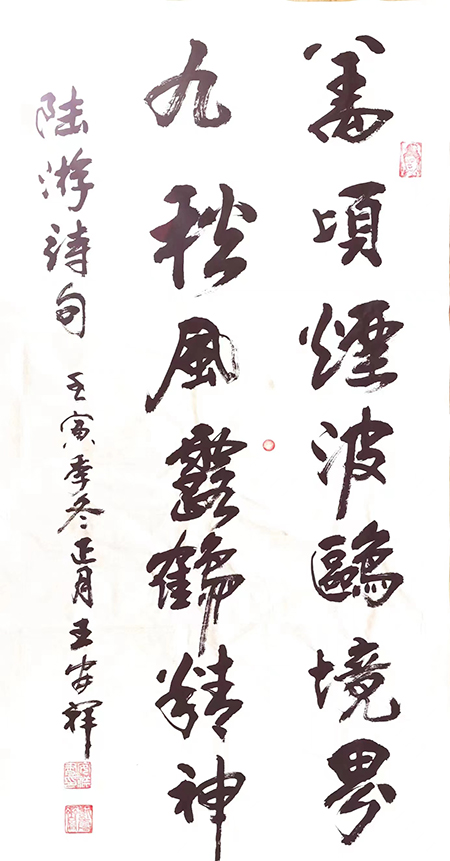 萬頃煙波鷗境界
九秋風露鶴精神
陸游詩句 壬寅季冬正月王安祥